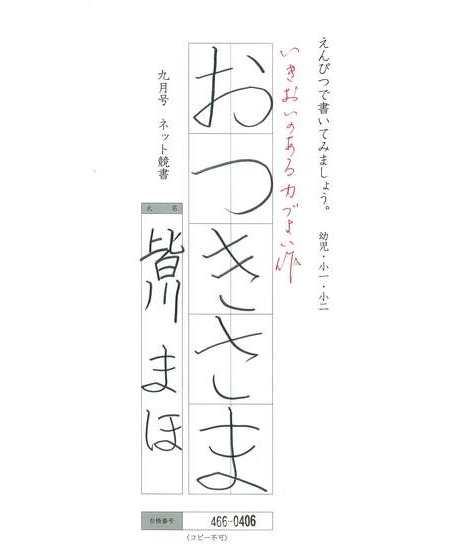 えんぴつで書いてみましょう。 幼児・小一・小二
いきおいのある力づよい作
おつきさま
九月号 ネット競書
氏名
皆川 まほ
台格番号 466-0406
(コピー不可)